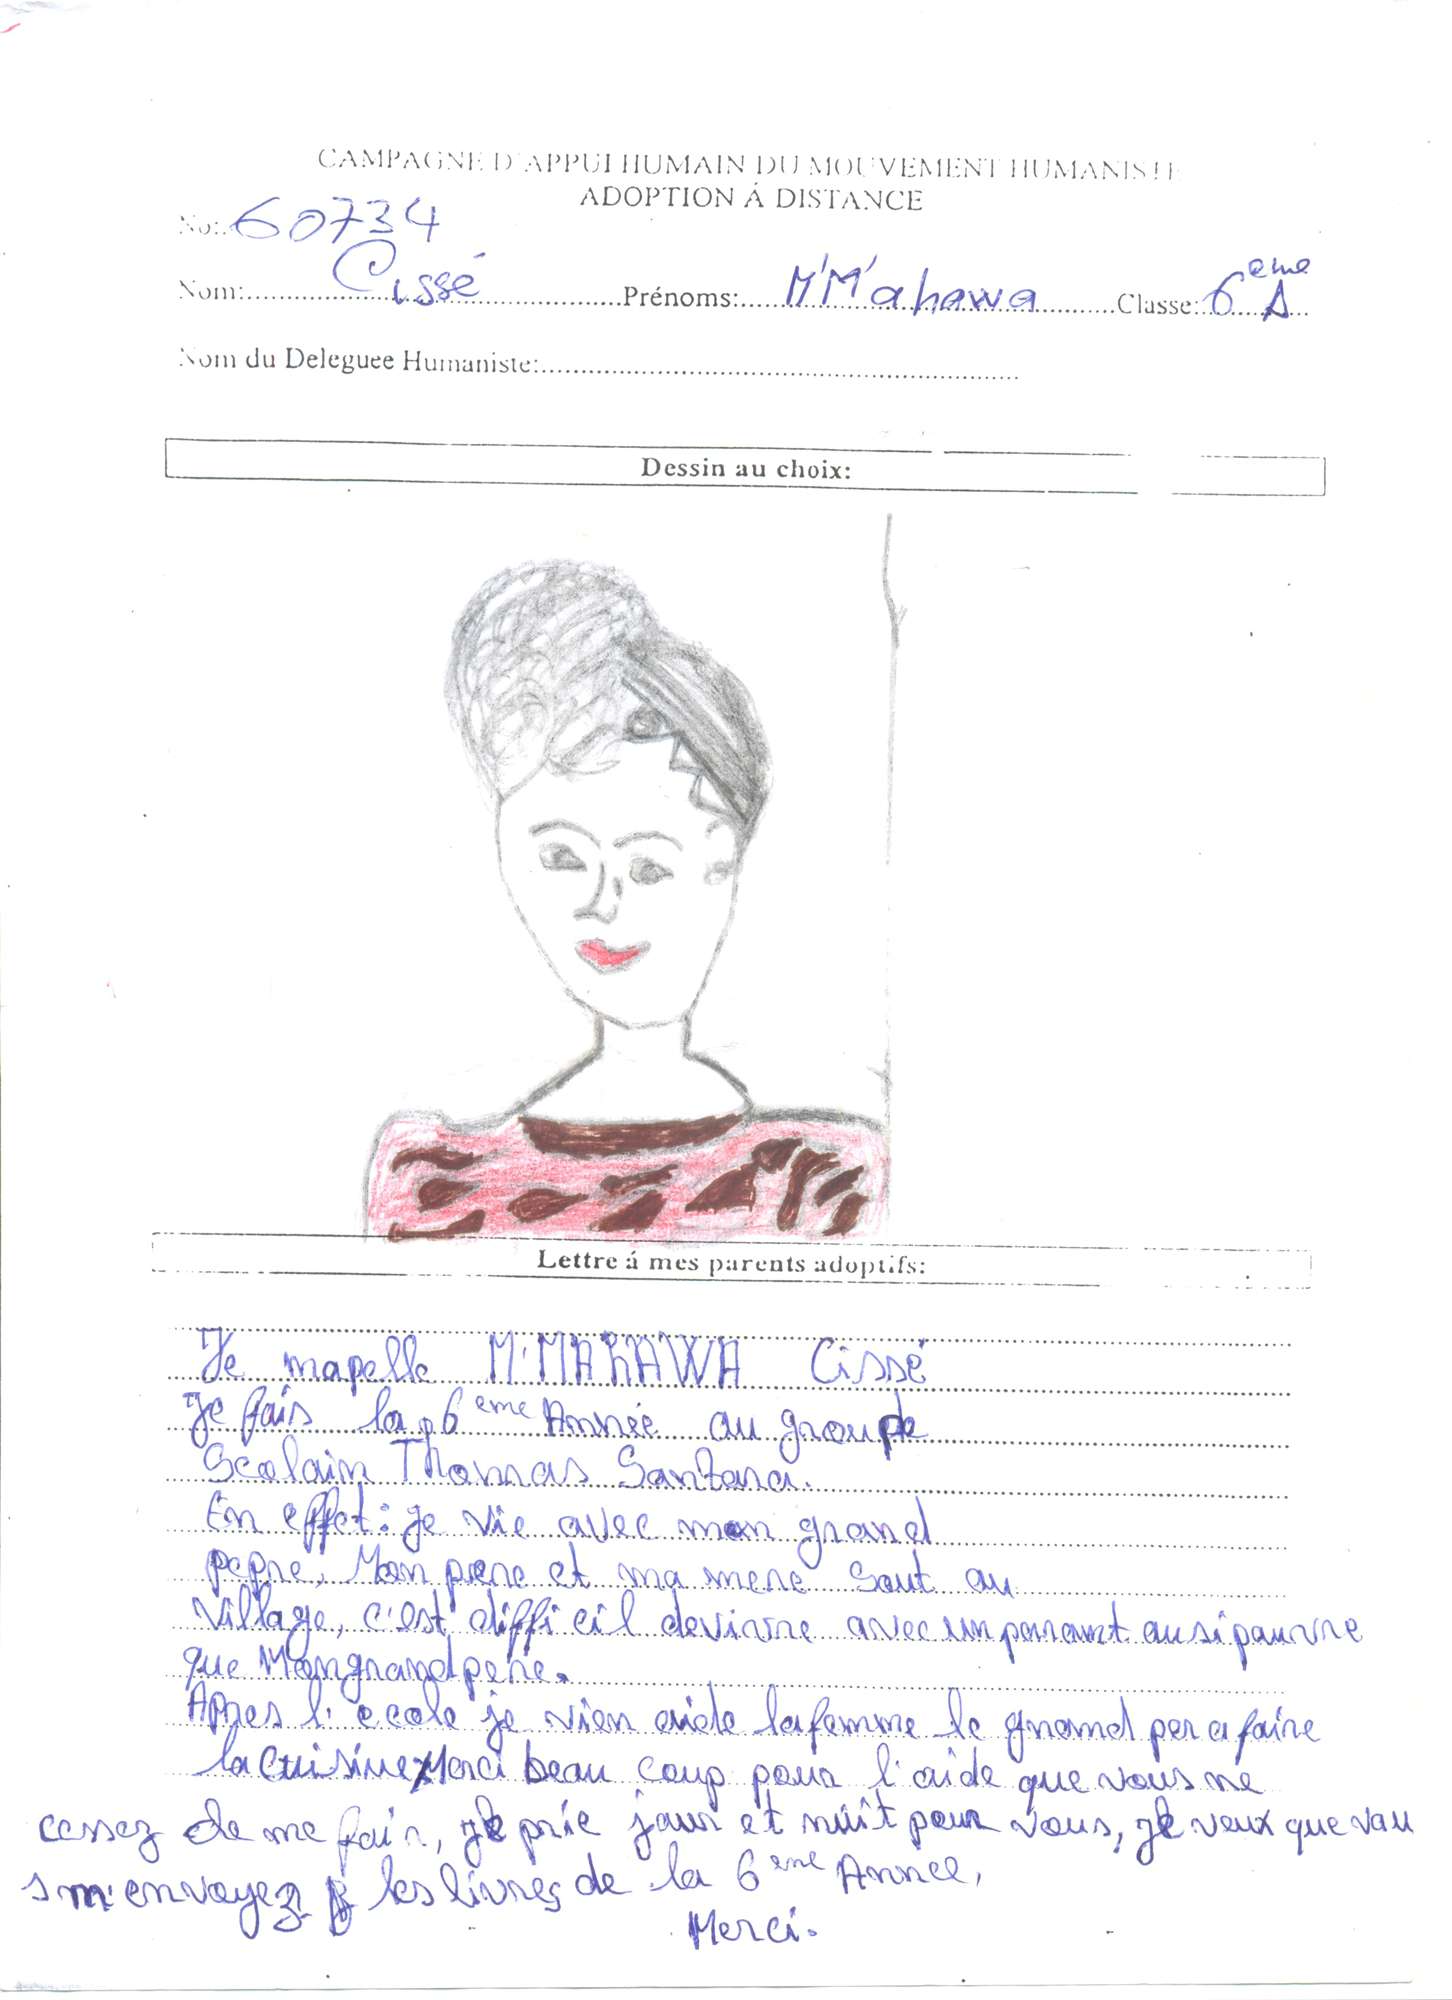 CAMPAGNE D'APPUI HUMAIN DU MOUVEMENT HUMANISTE
ADOPTION Á DISTANCE
No: 60734
Nom: Cissé Prénoms: M'M'ahawa Classe: 6eme A
Nom du Deleguee Humaniste:
Dessin au choix:
Lettre á mes parents adoptifs:
Je mapelle M'MAhAWA Cissé
Je fais la 6eme Année au groupe
Scolain Thomas Sankara.
En effet: je vie avec mon grand
pepre, Mon pere et ma mere sont au
village, c'est diffi cil devivre avec un parant ausi pauvre
que Mon grand pere.
Apres l'ecole je vien aide la femme le grand per a faire
la cuisine Merci beau coup pour l'aide que vous ne
cessez de me fair, je prie jour et nuit pour vous, je veux que vou
s m'envoyez les livres de la 6eme Annee,
Merci.